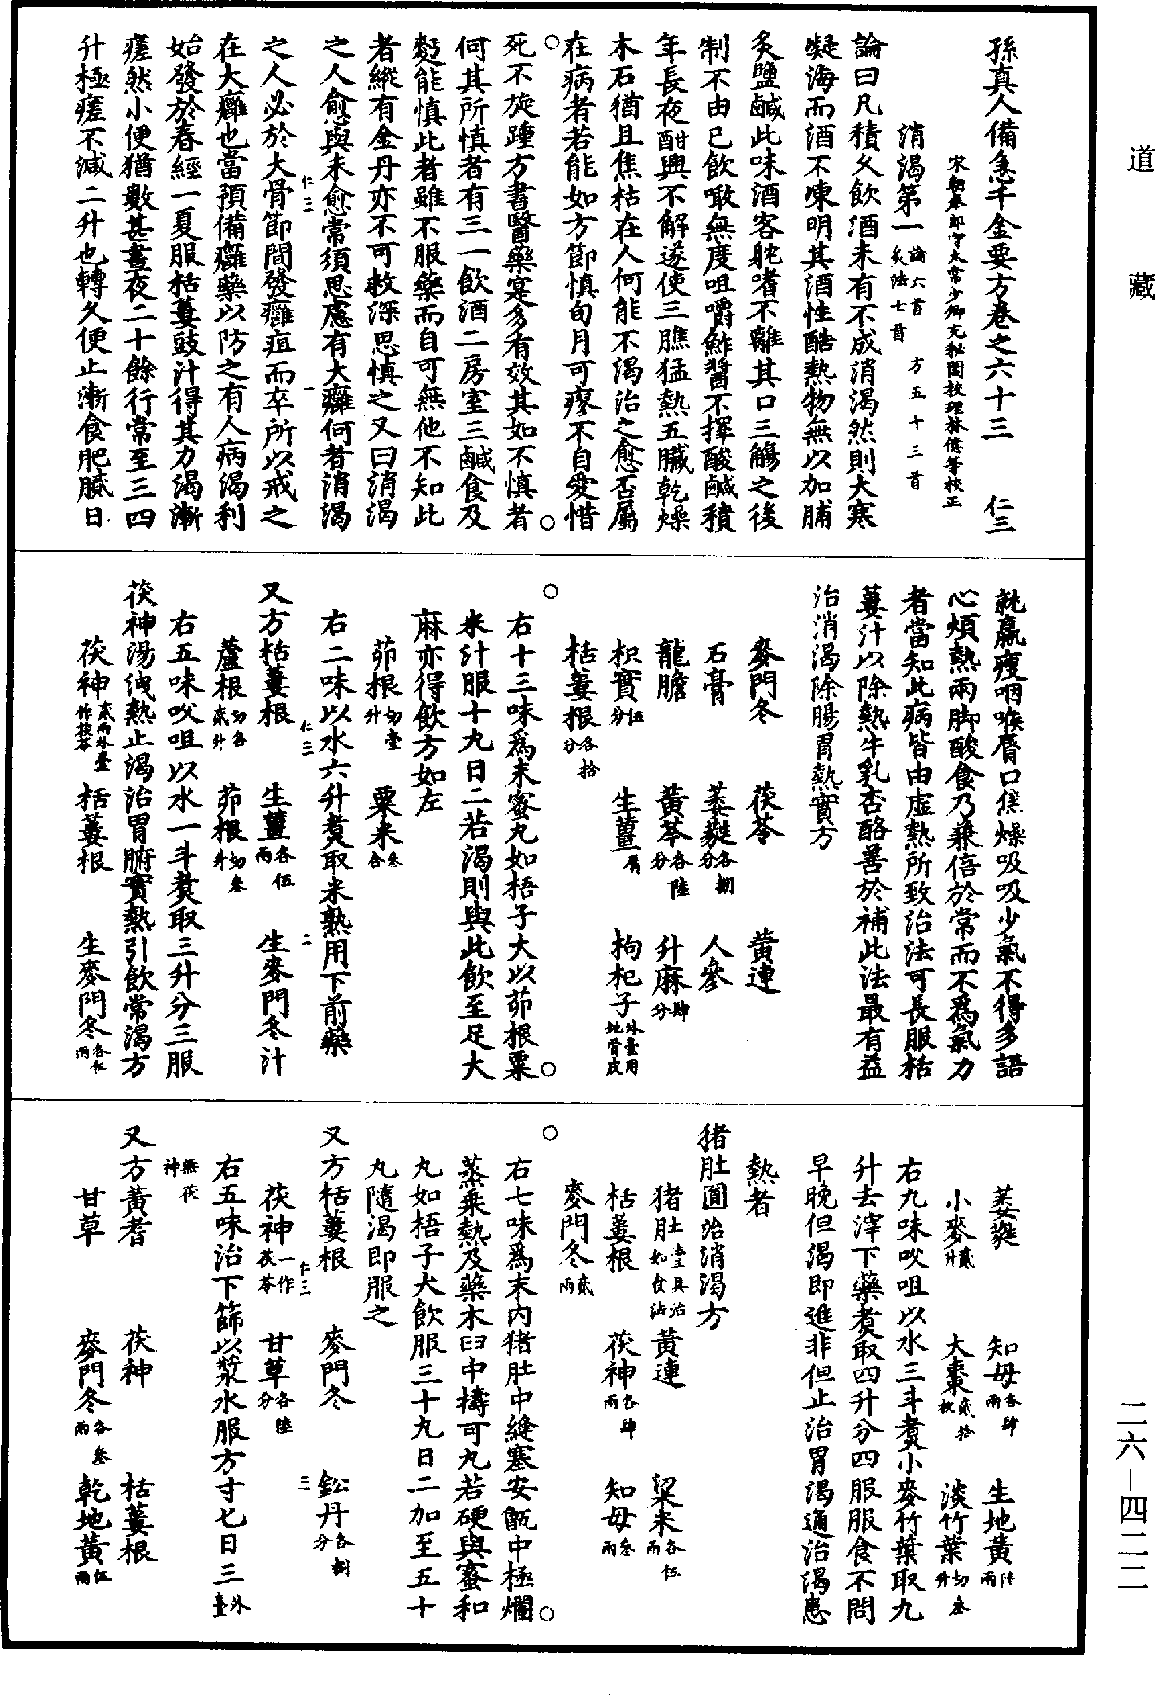 道藏
孫真人備急千金要方卷之六十三 仁三
宋朝奉郎守太常少卿充秘閣校理林億等校正
消渴第一 論六首 方五十三首 灸法七首
論曰凡積久飲酒未有不成消渴然則大寒
凝海而酒不凍明其酒性酷熱物無以加脯
炙鹽鹹此味酒客躭嗜不離其口三觴之後
制不由已飲噉無度咀嚼鮓醬不擇酸鹹積
年長夜酣興不解遂使三膲猛熱五臟乾燥
木石猶且焦枯在人何能不渴治之愈否屬
在病者若能如方節慎旬月可瘳不自愛惜
死不旋踵方書醫藥寔多有效其如不慎者
何其所慎者有三一飲酒二房室三鹹食及
麵能慎此者雖不服藥而自可無他不知此
者縱有金丹亦不可救深思慎之又曰消渴
之人愈與未愈常須思慮有大癰何者消渴
仁三 一
之人必於大骨節間發癰疽而卒所以戒之
在大癰也當預備癰藥以防之有人病渴利
始發於春經一夏服栝蔞豉汁得其力渴漸
瘥然小便猶數甚晝夜二十餘行常至三四
升極瘥不減二升也轉久便止漸食肥膩日
就羸瘦咽喉脣口焦燥吸吸少氣不得多語
心煩熱兩脚酸食乃兼倍於常而不為氣力
者當知此病皆由虛熱所致治法可長服栝
蔞汁以除熱牛乳杏酪善於補此法最有益
治消渴除腸胃熱實方
麥門冬 茯苓 黃連
石膏 萎蕤各捌分 人參
龍膽 黃芩各陸分 升麻肆分
枳實伍分 生薑屑 枸杞子外臺用地骨皮
栝蔞根各拾分
右十三味為末蜜丸如梧子大以茆根粟
米汁服十丸日二若渴則與此飲至足大
麻亦得飲方如左
茆根切壹升 粟米叁合
右二味以水六升煮取米熟用下前藥
仁三 二
又方栝蔞根 生薑各伍兩 生麥門冬汁
蘆根切各貳升 茆根切叁升
右五味㕮咀以水一斗煮取三升分三服
茯神湯洩熱止渴治胃腑實熱引飲常渴方
茯神貳兩外臺作茯苓 栝蔞根 生麥門冬各伍兩
萎蕤 知母各肆兩 生地黃陸兩
小麥貳升 大棗貳拾枚 淡竹葉切叁升
右九味㕮咀以水三斗煮小麥竹葉取九
升去滓下藥煮取四升分四服服食不問
早晚但渴即進非但止治胃渴通治渴患
熱者
猪肚圓治消渴方
猪肚壹具治如食法 黃連 粱米各伍兩
栝蔞根 茯神各肆兩 知母叁兩
麥門冬貳兩
右七味為末內猪肚中縫塞安甑中極爛
蒸乘熱及藥木臼中擣可丸若硬與蜜和
丸如梧子大飲服三十丸日二加至五十
丸隨渴即服之
又方栝蔞根 麥門冬 鉛丹各捌分
仁三 三
茯神一作茯苓 甘草各陸分
右五味治下篩以漿水服方寸匕日三外臺
無茯神
又方黃耆 茯神 栝蔞根
甘草 麥門冬各叁兩 乾地黃伍兩
二六—四二二